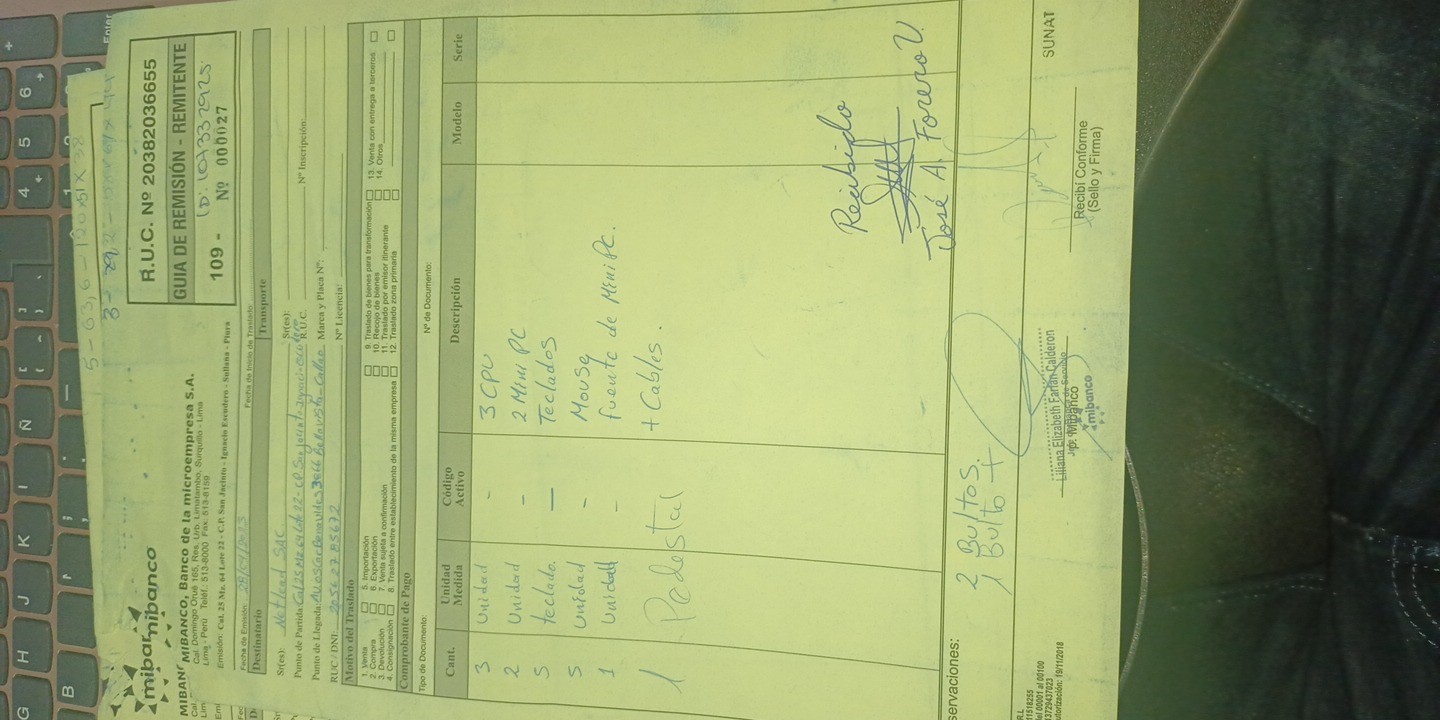 5 - 63,6 - 100x51x38
3 - 29,2 -
mibanco
MIBANCO, Banco de la microempresa S.A.
Cal. Domingo Orué 165, Res. Urb. Limatambo, Surquillo - Lima
Lima - Perú Teléf.: 513-8000 Fax: 513-8159
Emisión: Cal. 25 Mz. 64 Lote 22 - C.P. San Jacinto - Ignacio Escudero - Sullana - Piura
R.U.C. Nº 20382036655
GUIA DE REMISIÓN - REMITENTE
ID: 107332925
109 - Nº 000027
Fecha de Emisión: 28/04/2023 Fecha de Inicio de Traslado:
Destinatario
Transporte
Sr(es): Nettead SAC
Sr(es):
Punto de Partida: Cal 25 Mz 64 Lote 22 - CP San Jacinto
R.U.C. Nº Inscripción:
Punto de Llegada: Av Oscar Benavides 3866 Bellavista - Callao
Marca y Placa Nº:
RUC / DNI: 20562785672
Nº Licencia:
Motivo del Traslado
1. Venta 5. Importación 9. Traslado de bienes para transformación 13. Venta con entrega a terceros
2. Compra 6. Exportación 10. Recojo de bienes 14. Otros
3. Devolución 7. Venta sujeta a confirmación 11. Traslado por emisor itinerante
4. Consignación 8. Traslado entre establecimiento de la misma empresa 12. Traslado zona primaria
Comprobante de Pago
Tipo de Documento: Nº de Documento:
Cant. Unidad Medida Código Activo Descripción Modelo Serie
3 unidad - 3 CPU
2 unidad - 2 Mini PC
5 teclado - Teclados
5 unidad - Mouse
1 unidad - fuente de Mini Pc.
+ Cables.
1 Pedestal
Recibido
José A. Forero V.
servaciones:
2 Bultos.
1 Bulto +
Liliana Elizabeth Farfan Calderon
mibanco
Recibí Conforme
(Sello y Firma)
SUNAT
del 00001 al 00100
utorización: 19/11/2018